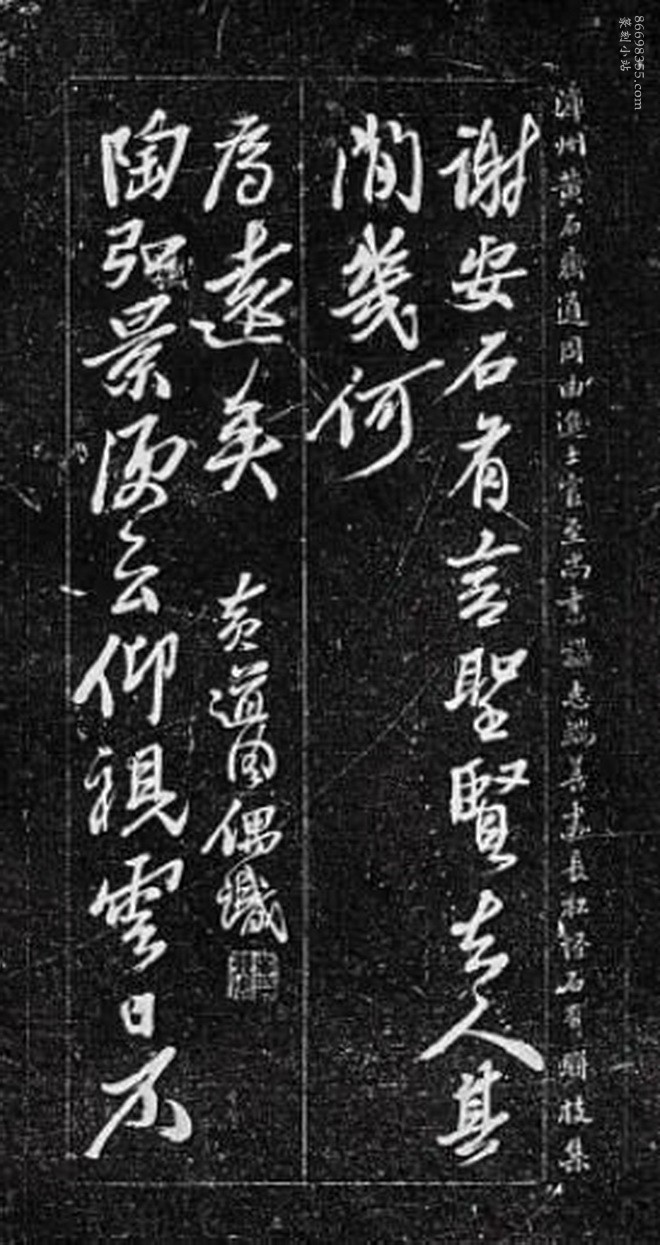 漳州黄石齋道周由進士官至尚書諡忠端善畫長松怪石有駢枝集
謝安石有言聖賢去人其
間幾何
陶弘景便云仰視雲日不
為遠矣
黄道周偶識
86698355.com
篆刻小站